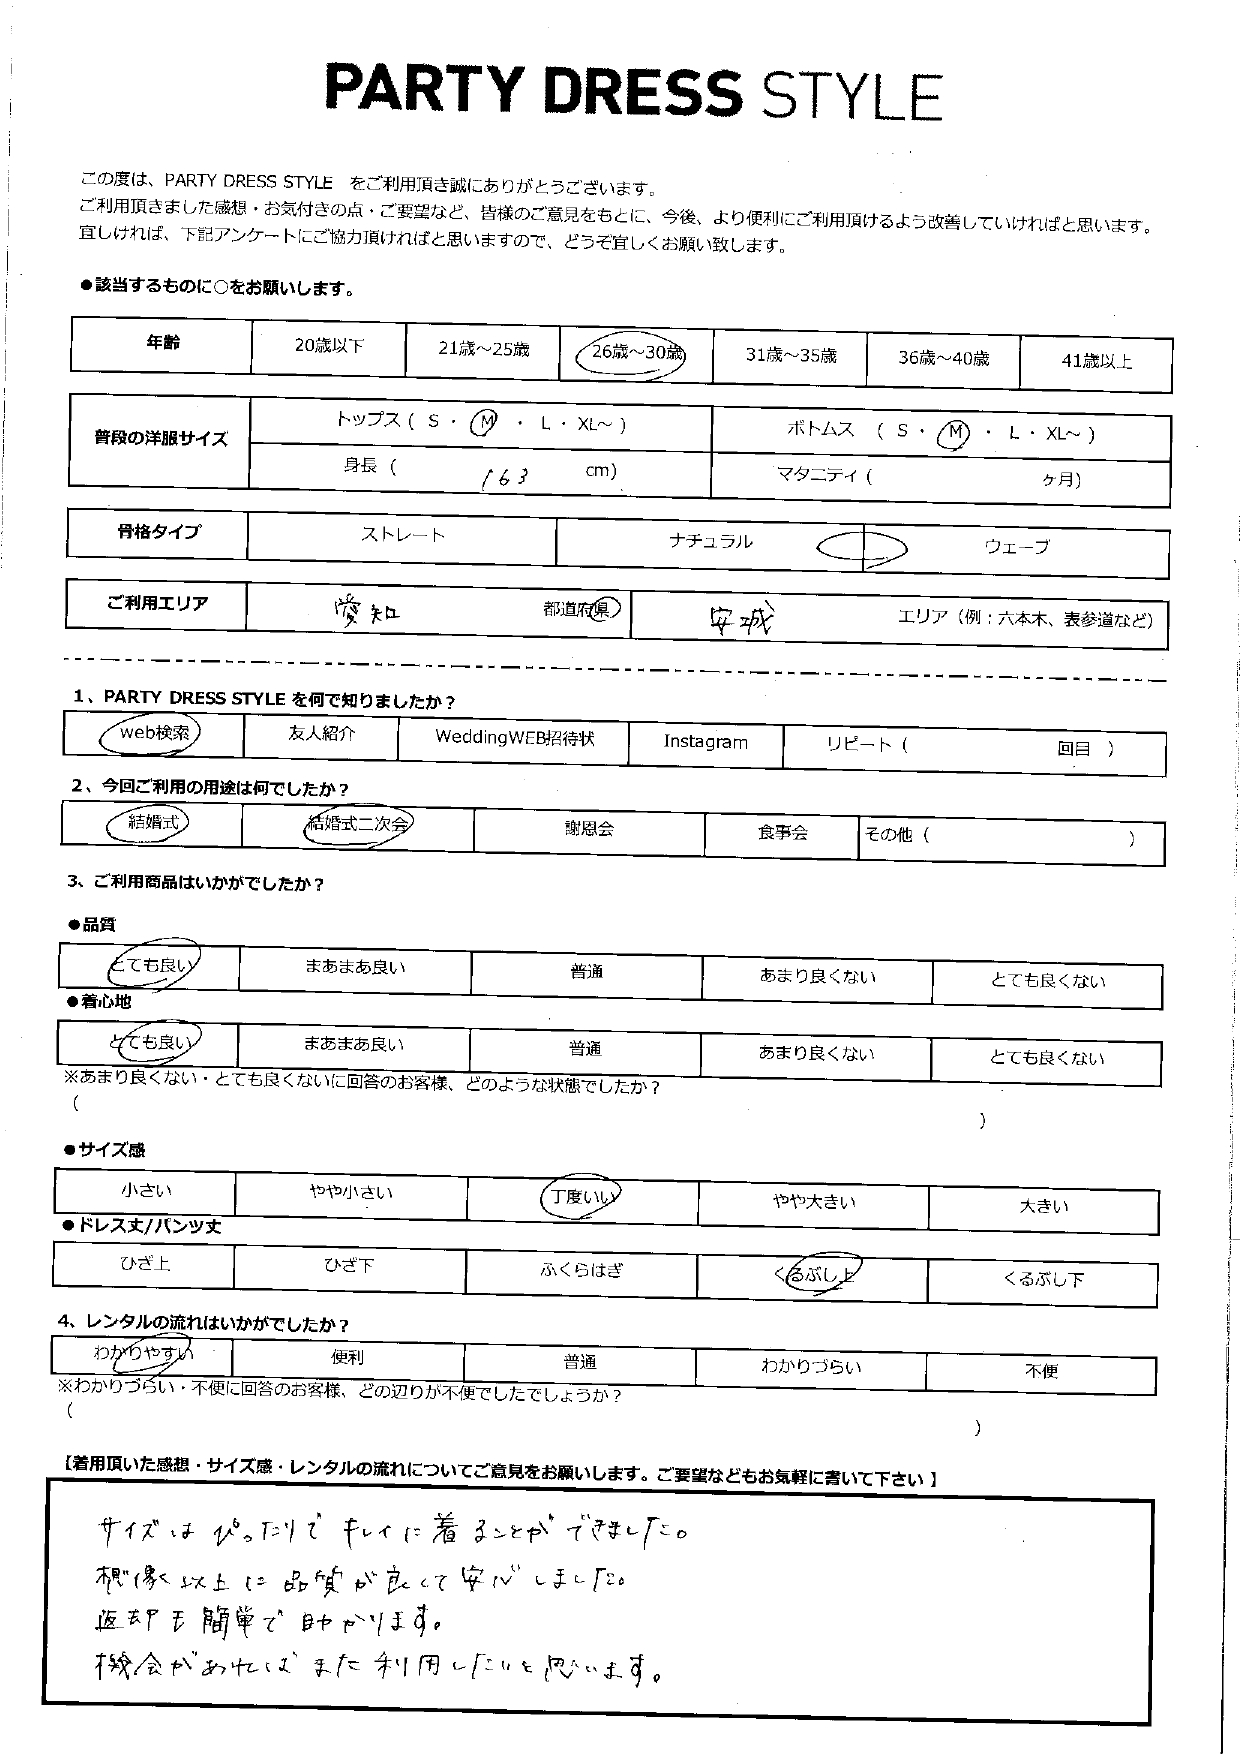 PARTY DRESS STYLE
この度は、PARTY DRESS STYLE をご利用頂き誠にありがとうございます。
ご利用頂きました感想・お気付きの点・ご要望など、皆様のご意見をもとに、今後、より便利にご利用頂けるよう改善していければと思います。
宜しければ、下記アンケートにご協力頂ければと思いますので、どうぞ宜しくお願い致します。
●該当するものに○をお願いします。
年齢 20歳以下 21歳～25歳 26歳～30歳 31歳～35歳 36歳～40歳 41歳以上
普段の洋服サイズ トップス ( S ・ M ・ L ・ XL～ ) ボトムス ( S ・ M ・ L ・ XL～ )
身長 ( 163 cm) マタニティ ( ヶ月)
骨格タイプ ストレート ナチュラル ウェーブ
ご利用エリア 愛知 都道府県 安城 エリア（例：六本木、表参道など）
1、PARTY DRESS STYLE を何で知りましたか？
web検索 友人紹介 WeddingWEB招待状 Instagram リピート ( 回目 )
2、今回ご利用の用途は何でしたか？
結婚式 結婚式二次会 謝恩会 食事会 その他 ( )
3、ご利用商品はいかがでしたか？
●品質
とても良い まあまあ良い 普通 あまり良くない とても良くない
●着心地
とても良い まあまあ良い 普通 あまり良くない とても良くない
※あまり良くない・とても良くないに回答のお客様、どのような状態でしたか？
( )
●サイズ感
小さい やや小さい 丁度いい やや大きい 大きい
●ドレス丈/パンツ丈
ひざ上 ひざ下 ふくらはぎ くるぶし上 くるぶし下
4、レンタルの流れはいかがでしたか？
わかりやすい 便利 普通 わかりづらい 不便
※わかりづらい・不便に回答のお客様、どの辺りが不便でしたでしょうか？
( )
【着用頂いた感想・サイズ感・レンタルの流れについてご意見をお願いします。ご要望などもお気軽に書いて下さい】
サイズはぴったりでキレイに着ることができました。
想像以上に品質が良くて安心しました。
返却も簡単で助かります。
機会があればまた利用したいと思います。